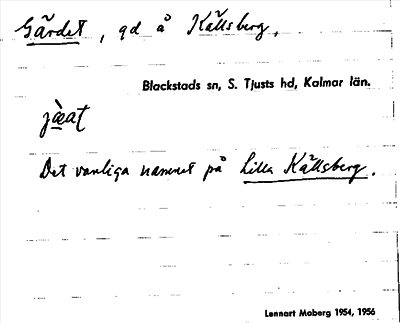 Gärdet, gd å Källsberg,
Blackstads sn, S. Tjusts hd, Kalmar län.
jæ̀at
Det vanliga namnet på Lilla Källsberg.
Lennart Moberg 1954, 1956